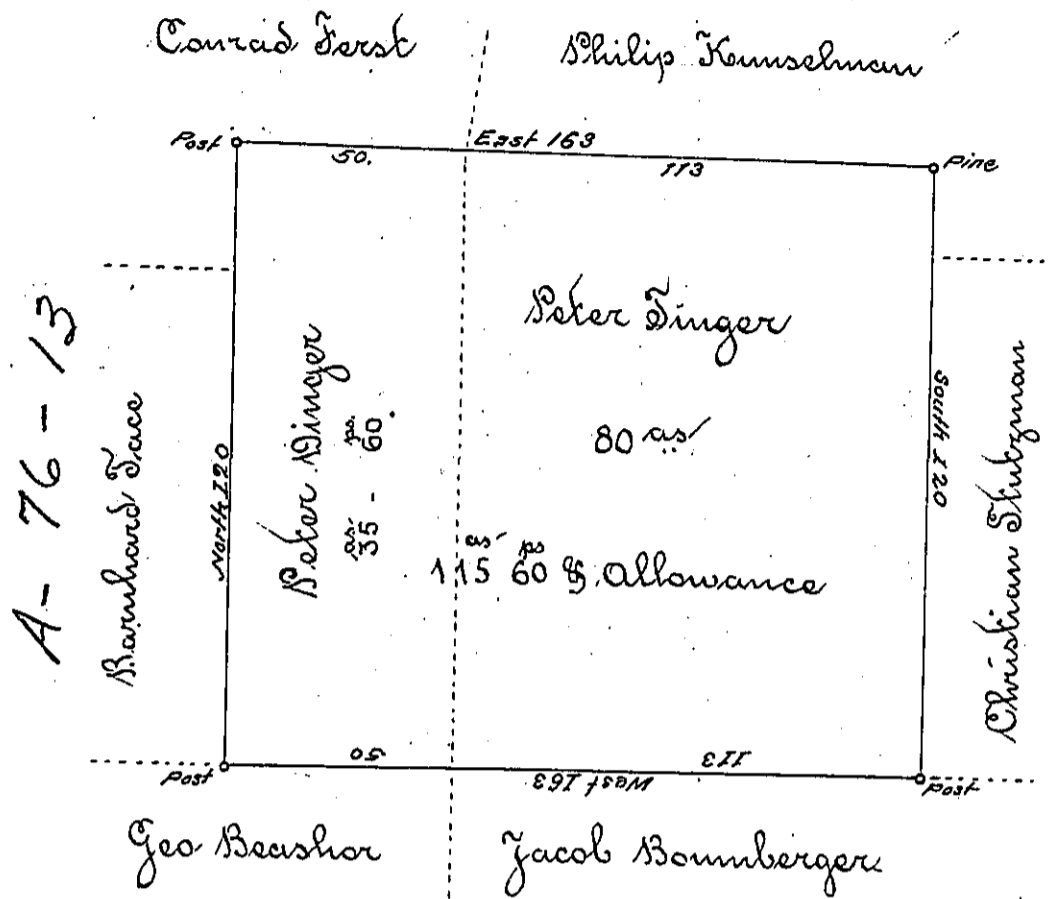 Conrad Ferst
Philip Kunselman
Post
East 163
50.
113
Pine
A - 76 - 13
Barnhard Face
North 120
Peter Dinger
as ps.
35 - 60.
Peter Finger
80 as
as ps
115 60 & Allowance
South 120
Christian Stutzman
Post
50
West 163
113
Post
Geo Beashor
Jacob Bomberger